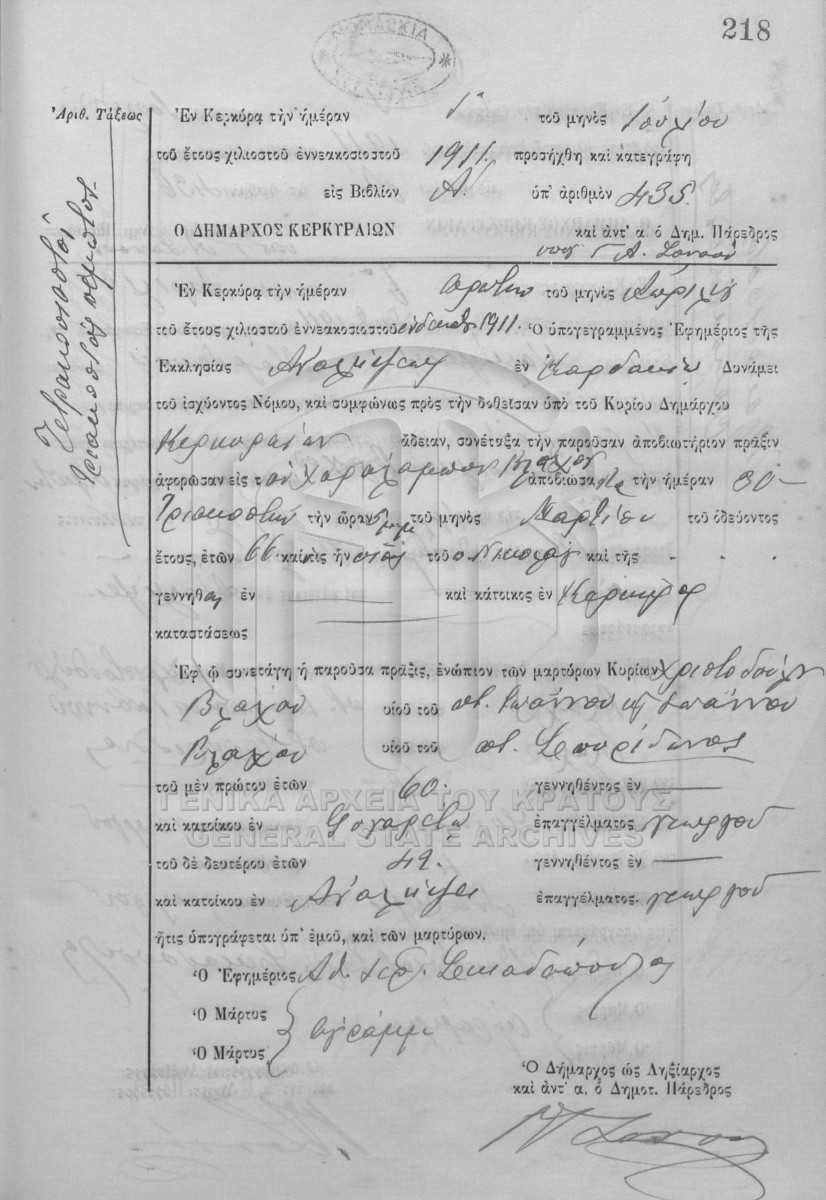 218
Ἀριθ. Τάξεως
Τετρακοσιοστὸς
τριακοστὸς πέμπτος
Ἐν Κερκύρᾳ τὴν ἡμέραν 1ῃ τοῦ μηνὸς Ἰουλίου
τοῦ ἔτους χιλιοστοῦ ἐννεακοσιοστοῦ 1911. προσήχθη καὶ κατεγράφη
εἰς Βιβλίον Α΄. ὑπ' ἀριθμὸν 435.
Ο ΔΗΜΑΡΧΟΣ ΚΕΡΚΥΡΑΙΩΝ καὶ ἀντ' α. ὁ Δημ. Πάρεδρος
Ἐν Κερκύρᾳ τὴν ἡμέραν πρώτην τοῦ μηνὸς Ἀπριλίου
τοῦ ἔτους χιλιοστοῦ ἐννεακοσιοστοῦ ἑνδεκάτου 1911. Ὁ ὑπογεγραμμένος Ἐφημέριος τῆς
Ἐκκλησίας Ἀναλήψεως ἐν Καρδακίῳ Δυνάμει
τοῦ ἰσχύοντος Νόμου, καὶ συμφώνως πρὸς τὴν δοθεῖσαν ὑπὸ τοῦ Κυρίου Δημάρχου
Κερκυραίων ἄδειαν, συνέταξα τὴν παροῦσαν ἀποβιωτήριον πρᾶξιν
ἀφορῶσαν εἰς τὸν Χαράλαμπον Βλάχον ἀποβιώσαντα τὴν ἡμέραν 30
Τριακοστὴν τὴν ὥραν 5 μμ τοῦ μηνὸς Μαρτίου τοῦ ὁδεύοντος
ἔτους, ἐτῶν 66 καὶ τις ἦν υἱὸς τοῦ Νικολάου καὶ τῆς
γεννηθεὶς ἐν καὶ κάτοικος ἐν Κερκύρᾳ
καταστάσεως
Ἐφ' ᾧ συνετάγη ἡ παροῦσα πρᾶξις, ἐνώπιον τῶν μαρτύρων Κυρίων Χριστοδούλου
Βλάχου υἱοῦ τοῦ ποτ. Ἰωάννου καὶ Ἰωάννου
Βλάχου υἱοῦ τοῦ ποτ. Σπυρίδωνος
τοῦ μὲν πρώτου ἐτῶν 60. γεννηθέντος ἐν
καὶ κατοίκου ἐν ἐπαγγέλματος γεωργοῦ
τοῦ δὲ δευτέρου ἐτῶν 42. γεννηθέντος ἐν
καὶ κατοίκου ἐν Ἀναλήψει ἐπαγγέλματος γεωργοῦ
ἥτις ὑπογράφεται ὑπ' ἐμοῦ, καὶ τῶν μαρτύρων.
Ὁ Ἐφημέριος Ἀθ. ἱερ.
Ὁ Μάρτυς ἀγράμμ
Ὁ Μάρτυς
Ὁ Δήμαρχος ὡς Ληξίαρχος
καὶ ἀντ' α. ὁ Δημοτ. Πάρεδρος
ΓΕΝΙΚΑ ΑΡΧΕΙΑ ΤΟΥ ΚΡΑΤΟΥΣ
GENERAL STATE ARCHIVES